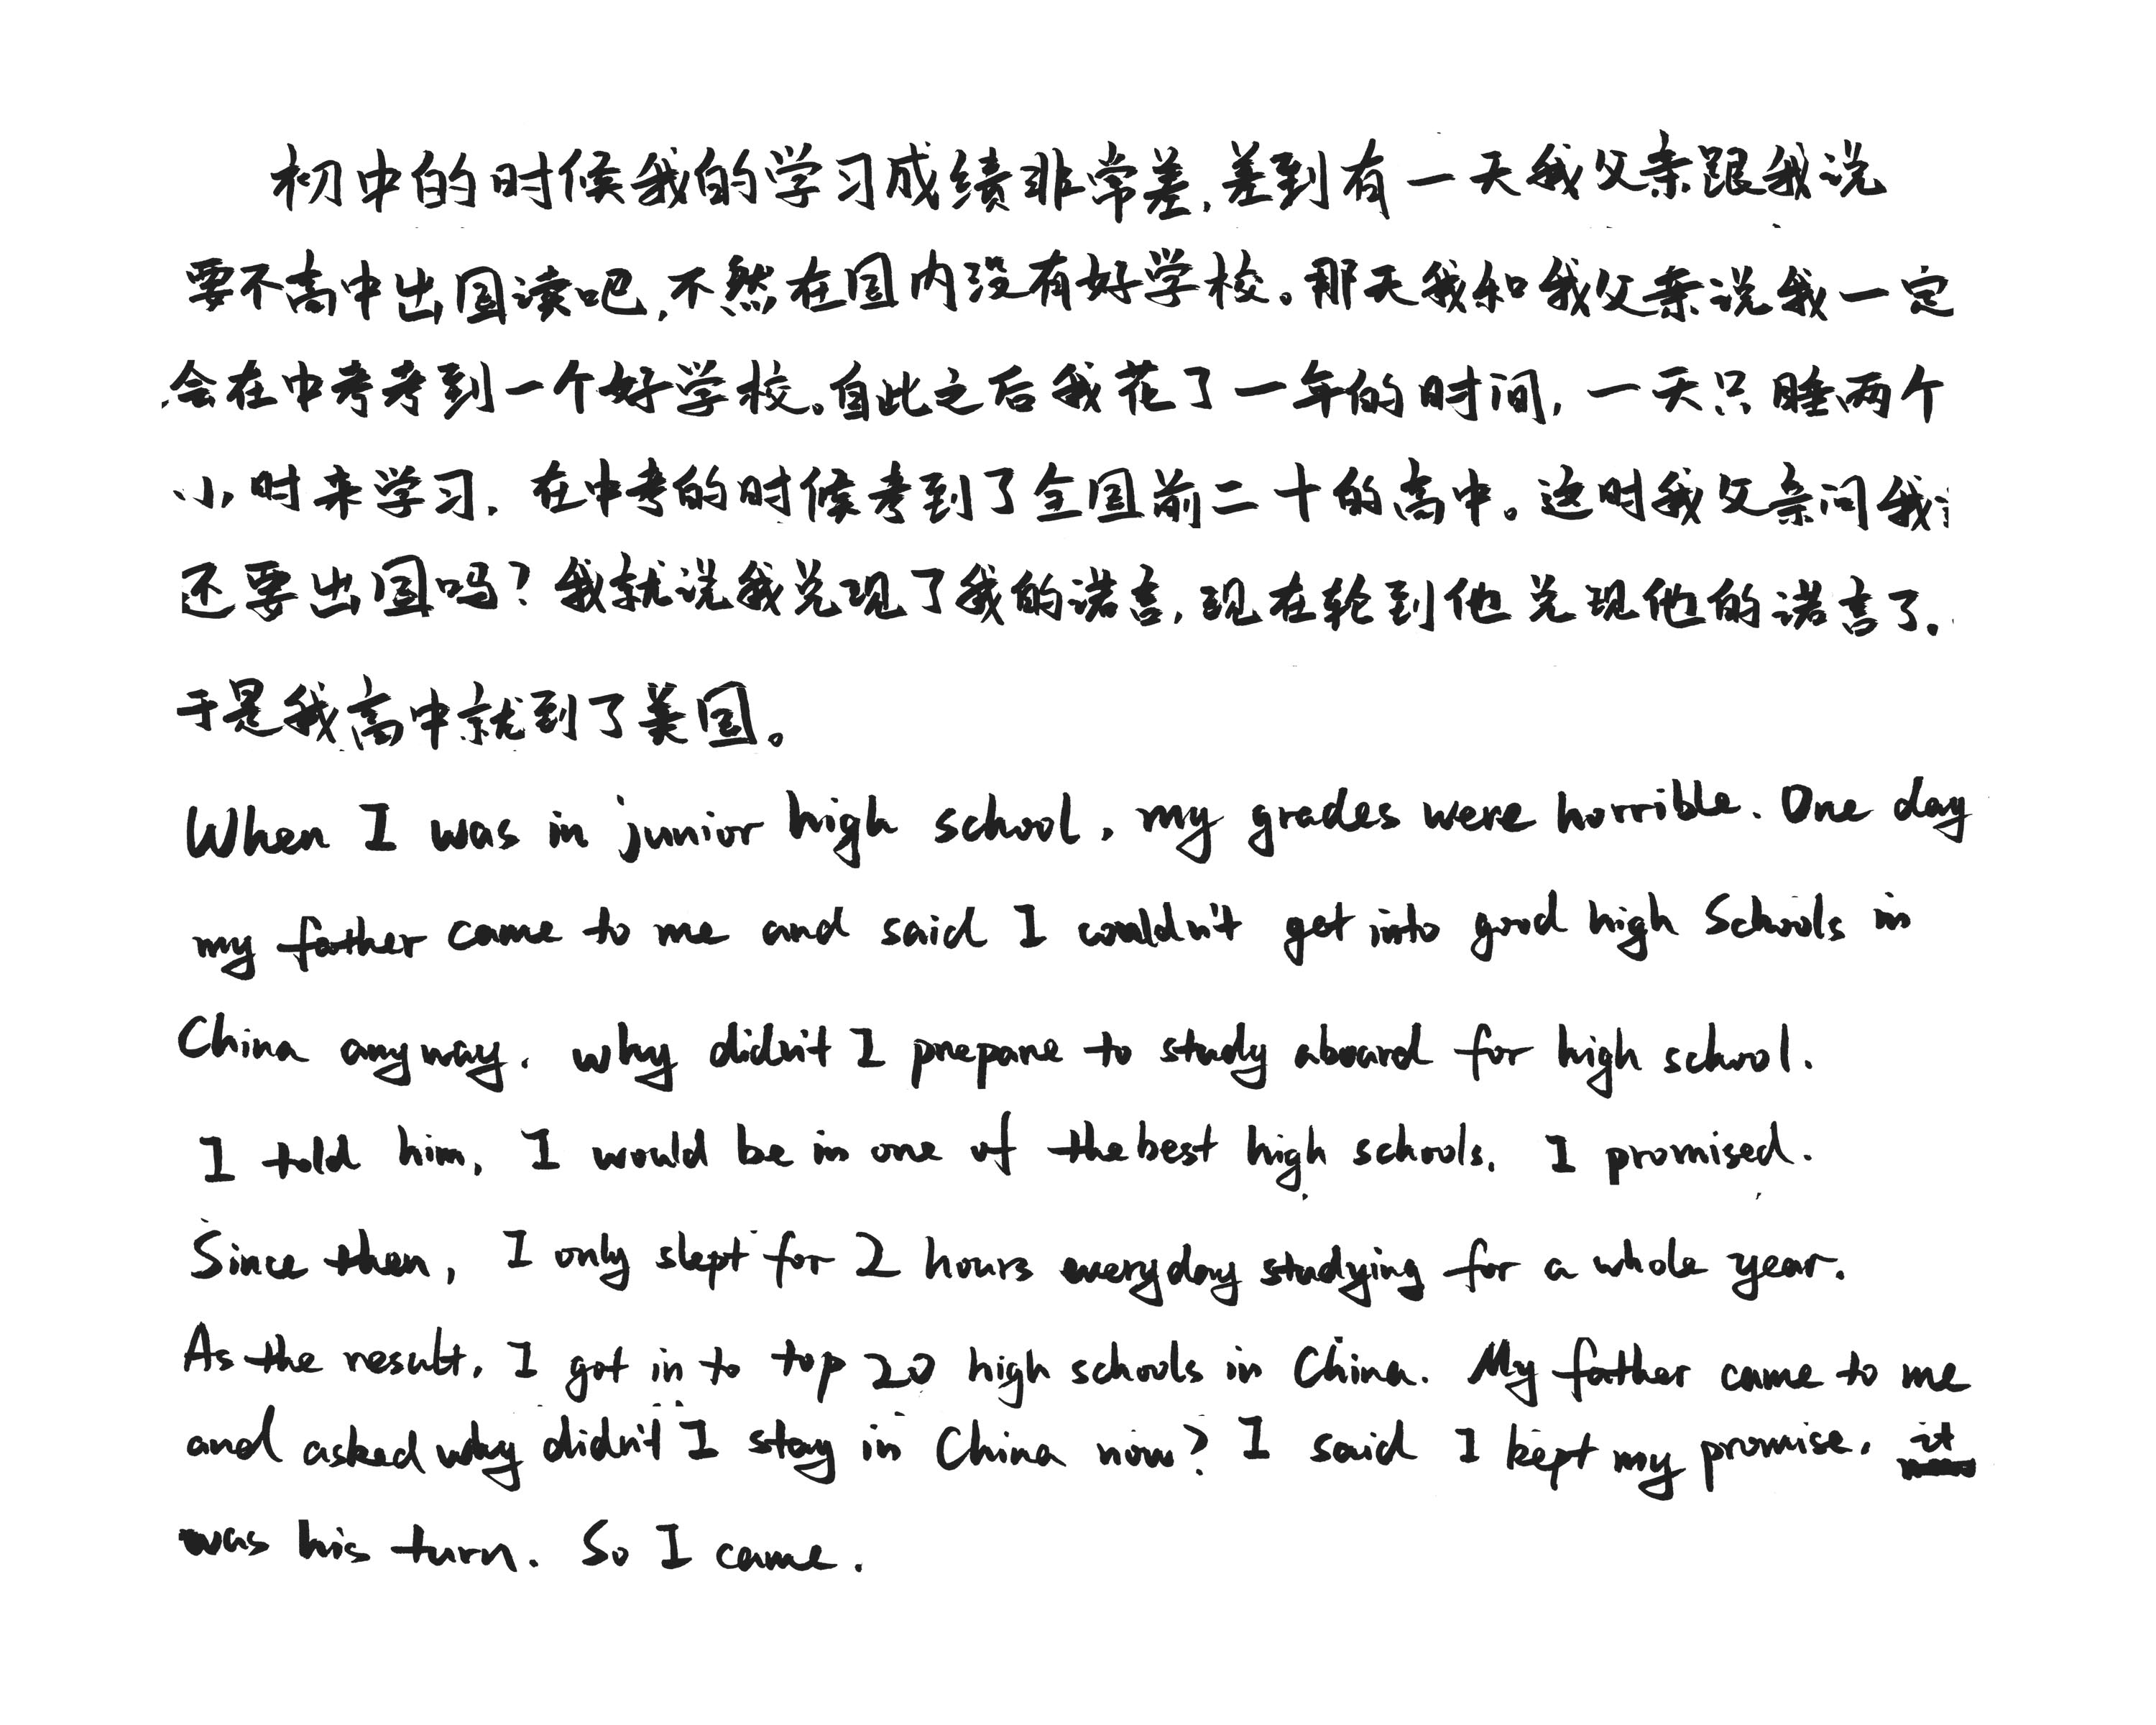 初中的时候我的学习成绩非常差,差到有一天我父亲跟我说
要不高中出国读吧,不然在国内没有好学校。那天我和我父亲说我一定
会在中考考到一个好学校。自此之后我花了一年的时间,一天只睡两个
小时来学习.在中考的时候考到了全国前二十的高中。这时我父亲问我
还要出国吗?我就说我兑现了我的诺言,现在轮到他兑现他的诺言了.
于是我高中就到了美国。
When I was in junior high school, my grades were horrible. One day
my father came to me and said I couldn't get into good high Schools in
China anyway. why didn't I prepare to study aboard for high school.
I told him, I would be in one of the best high schools. I promised.
Since then, I only slept for 2 hours everyday studying for a whole year.
As the result, I got in to top 20 high schools in China. My father came to me
and asked why didn't I stay in China now? I said I kept my promise. it
was his turn. So I came.